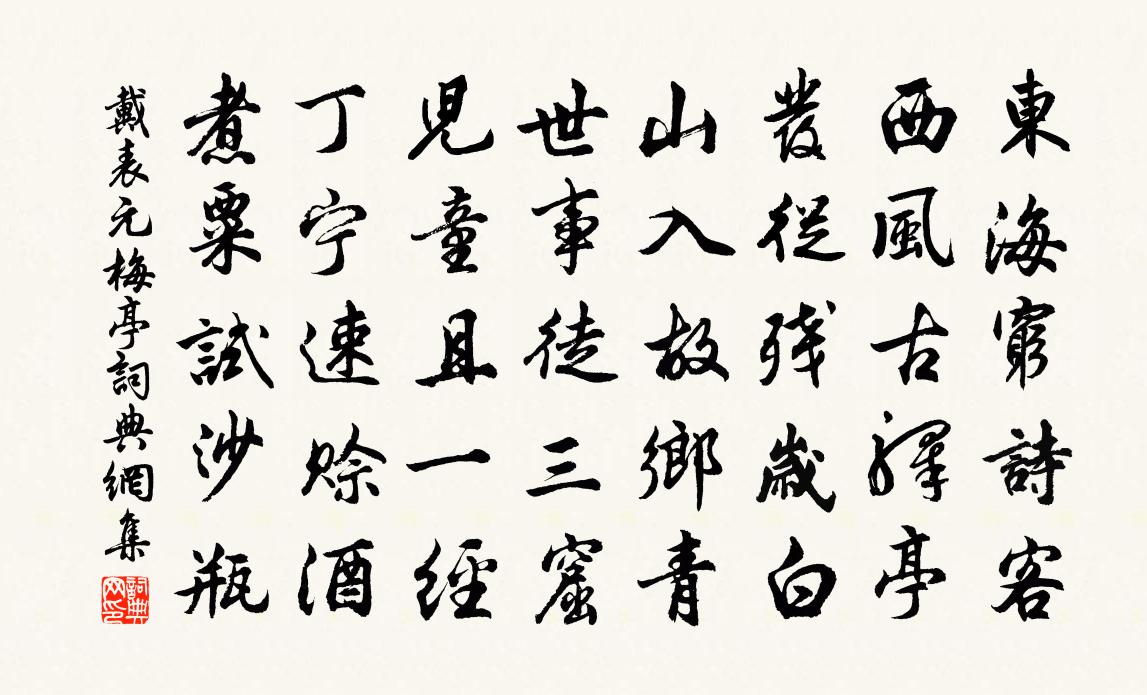 東海窮詩客
西風古驛亭
發從残歲白
山入故鄉青
世事徒三窟
兒童且一經
丁宁速赊酒
煮粟試沙瓶
戴表元梅亭詞典網集
詞典網印